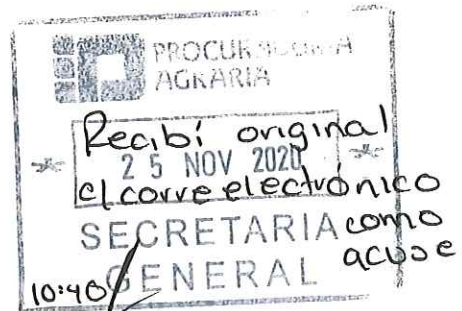 PROCURADURIA
AGRARIA
Recibí original
25 NOV 2020
c/correo electrónico
SECRETARIA como
GENERAL acuse
10:40